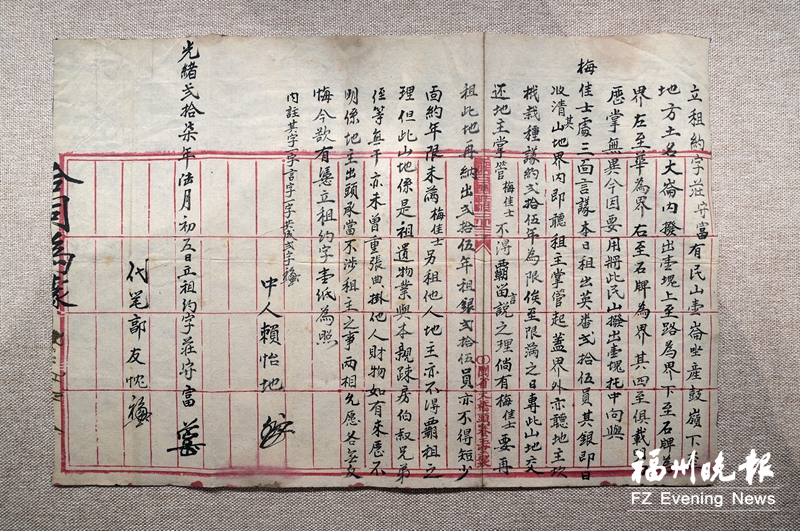 立租約字莊守富有民山壹崙坐產鼓嶺下
地方土名大崙內撥出壹塊上至路為界下至石牌為
界左至華為界右至石牌為界其四至俱載
歷掌無異今因要用將此民山撥出壹塊托中向與
梅佳士處三面言議本日租出英番弍拾伍員其銀即日
收清其山地界內即聽租主掌管起蓋界外亦聽地主坎
栽種議約弍拾伍年為限俟至限滿之日專此山地交
还地主掌管梅佳士不得霸留言説之理倘有梅佳士要再
租此地再納出弍拾伍年租銀弍拾伍員亦不得短少
面約年限未滿梅佳士另租他人地主亦不得霸租之
理但此山地係是祖遺物業與本親疎房伯叔兄弟
侄等無干亦未曾重張典掛他人財物如有来歷不
明係地主出頭承當不涉租主之事兩相允愿各無反
悔今欲有憑立租約字壹紙為照
內註其字一字言字一字共成弍字
中人賴怡地
光緒弍拾柒年陆月初五日立租約字莊守富
代笔郭友忱
合同約據
福州晚報
FZ Evening News